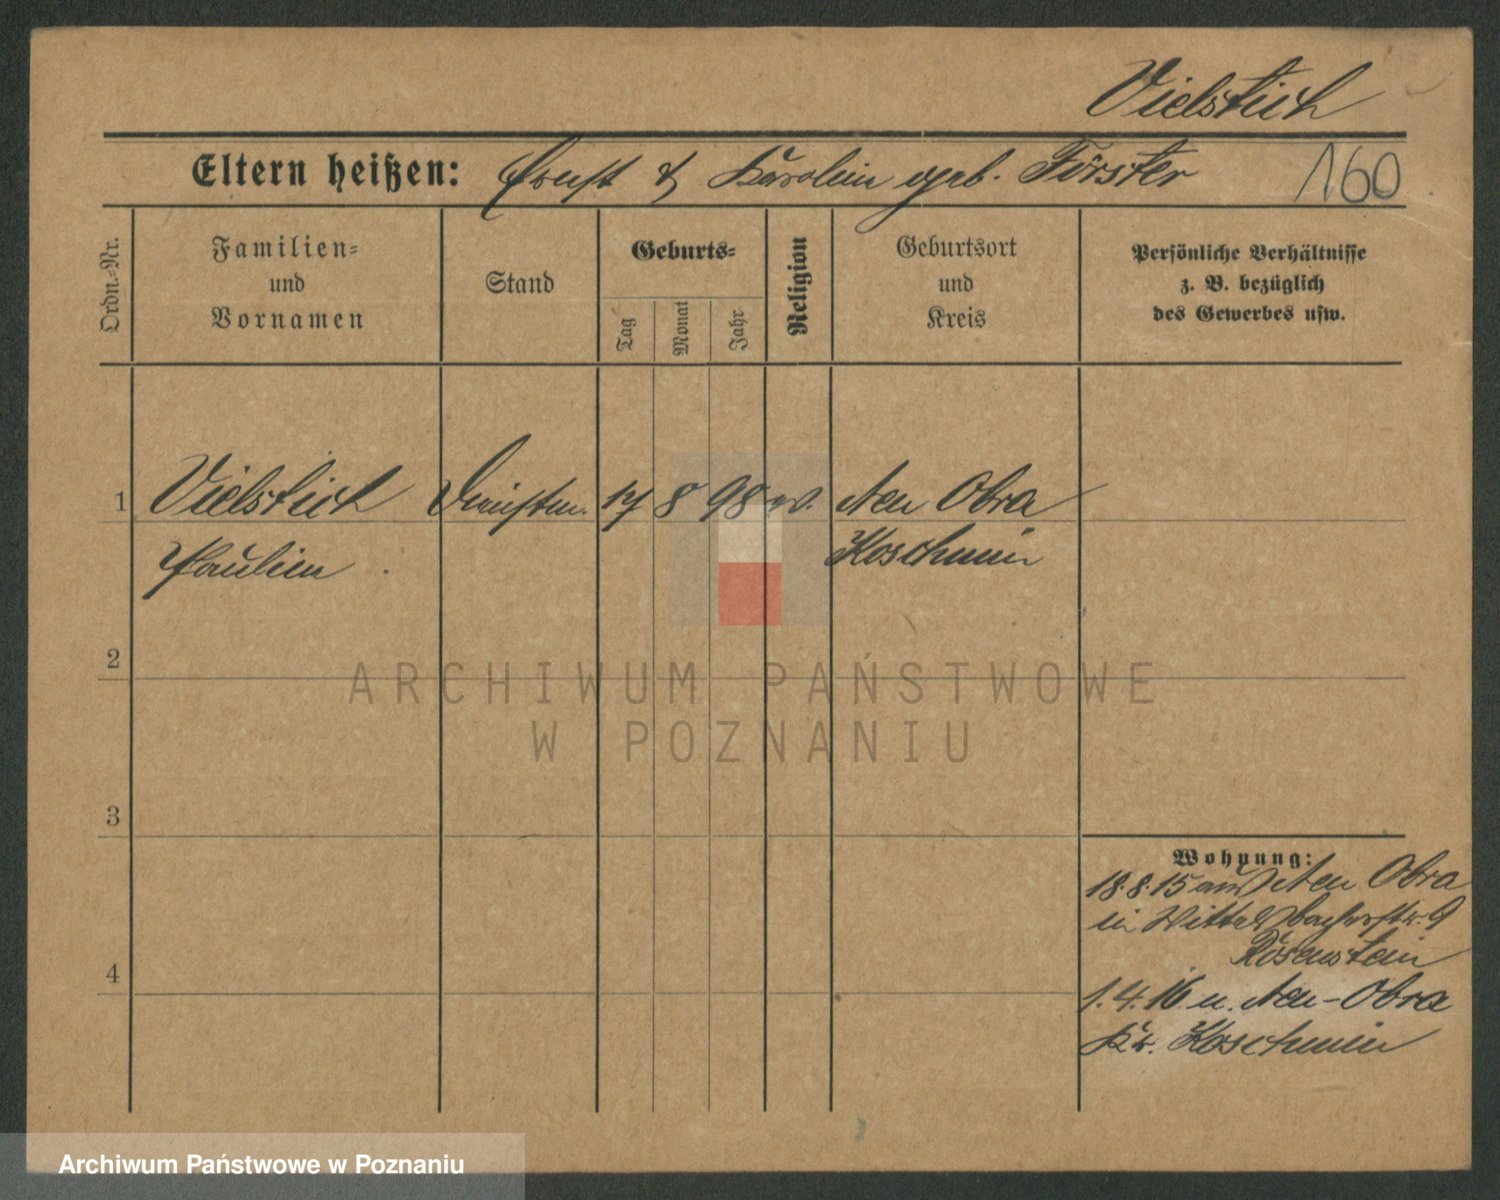 Vielstich
Eltern heißen: Ernst & Karolein geb. Förster 160
Ordn.-Nr.
Familien-
und
Vornamen
Stand
Geburts-
Tag
Monat
Jahr
Religion
Geburtsort
und
Kreis
Persönliche Verhältnisse
z. B. bezüglich
des Gewerbes usw.
1 Vielstich 17 8 98 ev. Neu Obra
Paulein Koschmin
2
ARCHIWUM PAŃSTWOWE
W POZNANIU
3
Wohnung:
18.8.15 aus Neu Obra
in 9
Rosenstein
4
1.4.16 n. Neu-Obra
Kr. Koschmin
Archiwum Państwowe w Poznaniu